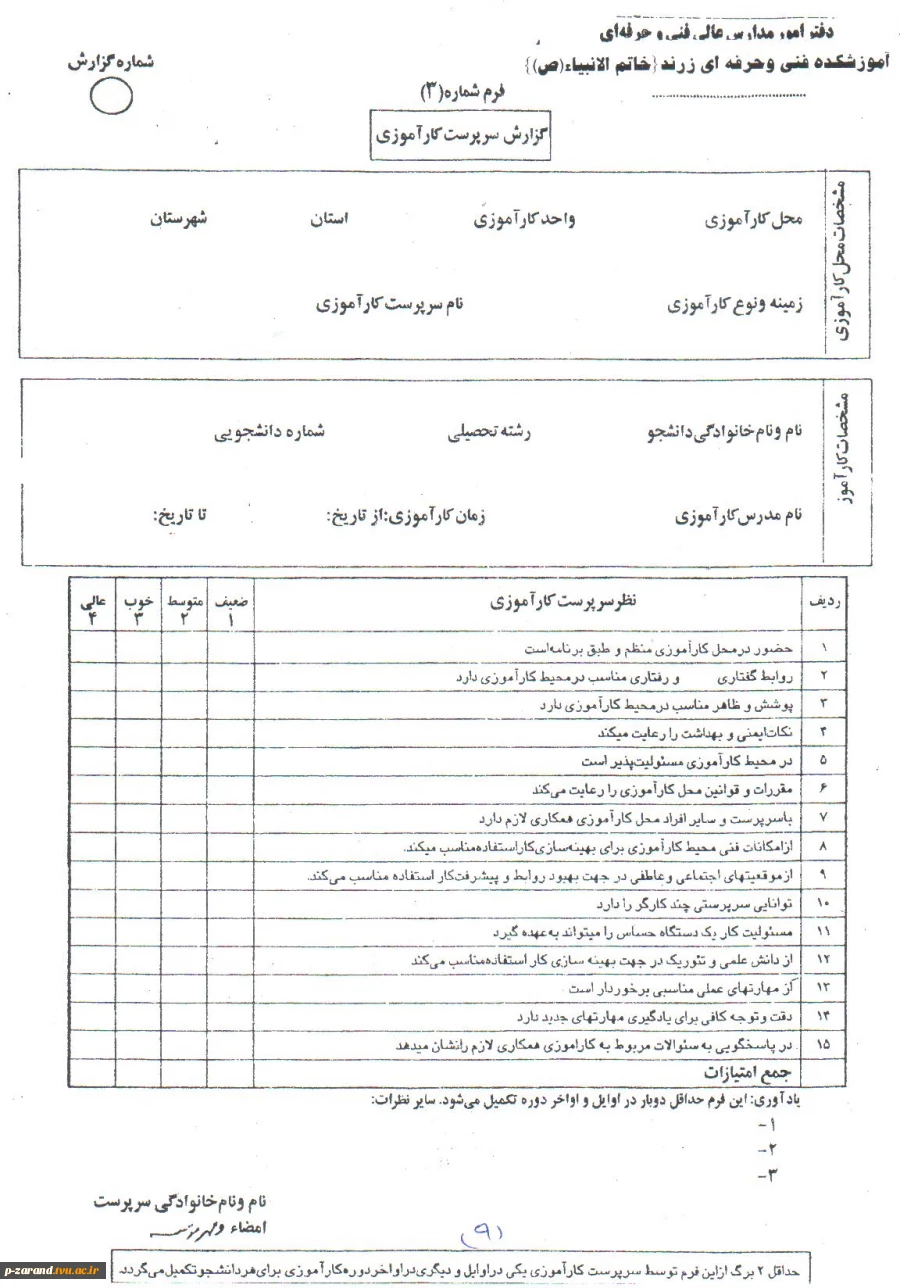 دفتر امور مدارس عالی فنی و حرفه‌ای
آموزشکده فنی وحرفه ای زرند{خاتم الانبیاء(ص)}
شماره گزارش
فرم شماره(۳)
گزارش سرپرست کارآموزی
مشخصات محل کارآموزی
محل کارآموزی واحد کارآموزی استان شهرستان
زمینه ونوع کارآموزی نام سرپرست کارآموزی
مشخصات کارآموز
نام ونام خانوادگی دانشجو رشته تحصیلی شماره دانشجویی
نام مدرس کارآموزی زمان کارآموزی:از تاریخ: تا تاریخ:
ردیف نظرسرپرست کارآموزی ضعیف ۱ متوسط ۲ خوب ۳ عالی ۴
۱ حضور درمحل کارآموزی منظم و طبق برنامه‌است
۲ روابط گفتاری و رفتاری مناسب درمحیط کارآموزی دارد
۳ پوشش و ظاهر مناسب درمحیط کارآموزی دارد
۴ نکات‌ایمنی و بهداشت را رعایت میکند
۵ در محیط کارآموزی مسئولیت‌پذیر است
۶ مقررات و قوانین محل کارآموزی را رعایت می‌کند
۷ باسرپرست و سایر افراد محل کارآموزی همکاری لازم دارد
۸ ازامکانات فنی محیط کارآموزی برای بهینه‌سازی‌کاراستفاده‌مناسب میکند.
۹ ازموقعیتهای اجتماعی وعاطفی در جهت بهبود روابط و پیشرفت‌کار استفاده مناسب می‌کند.
۱۰ توانایی سرپرستی چند کارگر را دارد
۱۱ مسئولیت کار یک دستگاه حساس را میتواند به‌عهده گیرد
۱۲ از دانش علمی و تئوریک در جهت بهینه سازی کار استفاده‌مناسب می‌کند
۱۳ از مهارتهای عملی مناسبی برخوردار است
۱۴ دقت وتوجه کافی برای یادگیری مهارتهای جدید دارد
۱۵ در پاسخگویی به سئوالات مربوط به کاراموزی همکاری لازم رانشان میدهد
جمع امتیازات
یادآوری: این فرم حداقل دوبار در اوایل و اواخر دوره تکمیل می‌شود. سایر نظرات:
۱-
۲-
۳-
نام ونام خانوادگی سرپرست
امضاء و مهر موسسه
(۹)
حداقل ۲ برگ ازاین فرم توسط سرپرست کارآموزی یکی دراوایل و دیگری دراواخردوره‌کارآموزی برای‌هردانشجوتکمیل‌می‌گردد.
p-zarand.tvu.ac.ir